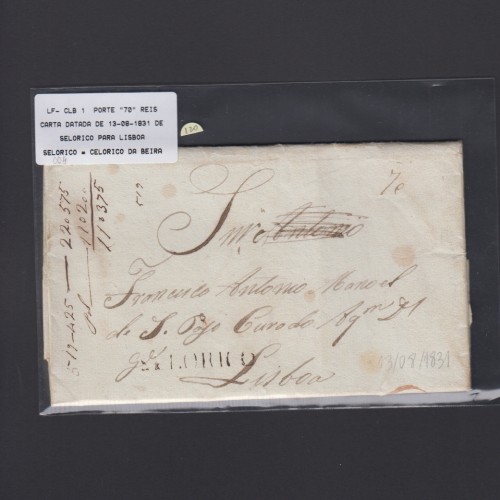 LF- CLB 1 PORTE "70" REIS
CARTA DATADA DE 13-08-1831 DE
SELORICO PARA LISBOA
SELORICO = CELORICO DA BEIRA
130
7e
519
Antonio
Francisco Antonio Manoel
de S. Payo Curado
Lisboa
13/08/1831
519-425 — 220575
110200
110375